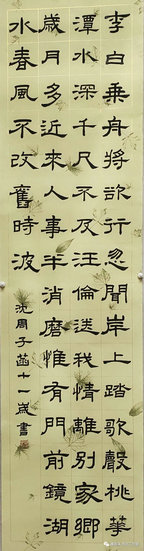 李白乘舟將欲行忽聞岸上踏歌聲桃華
潭水深千尺不及汪倫送我情離別家鄉
歲月多近來人事半消磨惟有門前鏡湖
水春風不改舊時波
沈周子菡十一歲書